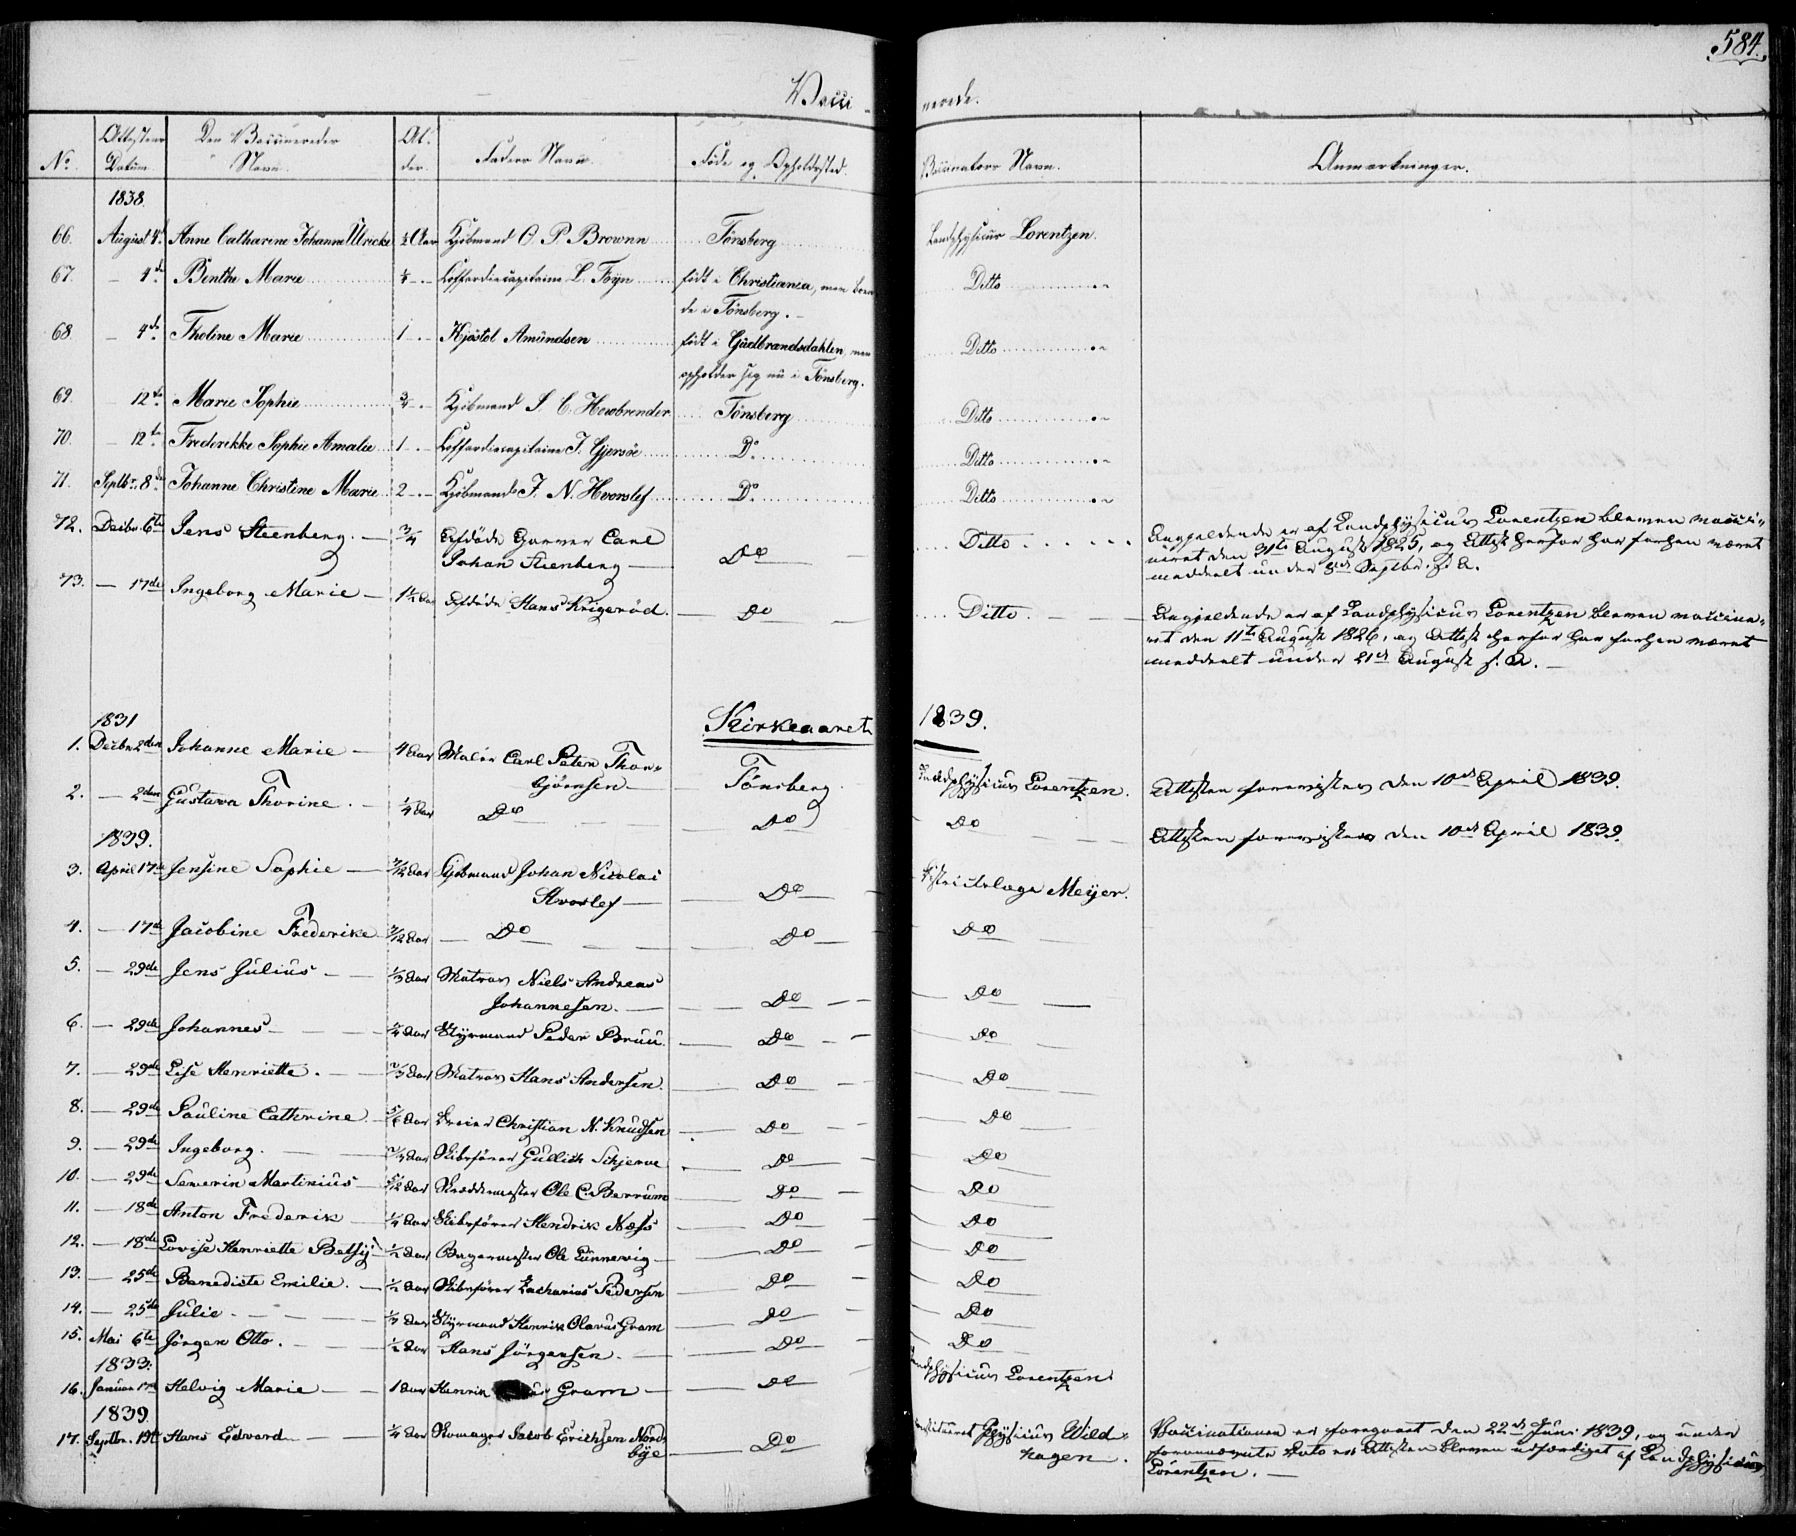 584.
Vacci-
nerede.
No. Attestens Datum. Den Vaccineredes Navn. Al-der. Faders Navn. Føde og Opholdssted. Vaccinators Navn. Anmærkninger.
1838.
66. August 4de Anne Catharine Johanne Ulricke ½ Aar Kjøbmand O. P. Brownn Tønsberg Landphysicus Lorentzen.
67. – 4de Benthe Marie ¼ – Coffardiecapitaine L. Foyn født i Christiania, men boen-
de i Tønsberg. Ditto
68. – 4de Tholine Marie 1 – Kjøstol Amundsen født i Gudbrandsdahlen, men
opholder sig nu i Tønsberg. Ditto
69. 12te Marie Sophie ¾ – Kjøbmand S. C. Tønsberg Ditto
70. – 12te Frederikke Sophie Amalie 1 – Coffardiecapitaine J. Gjersøe Do. Ditto
71. Septbr. 8de Johanne Christine Marie 2 – Kjøbmand J. N. Hvorslef Do Ditto
72. Decbr. 6te Jens Steenberg. – ¾ Afdøde Garver Carl
Johan Stenberg – Do Ditto Angjeldende er af Landphysicus Lorentzen bleven vacci-
neret den 31te August 1825, og Attest herfor har forhen været
meddeelt under 8de Septbr. s. A.
73. – 17de Ingeborg Marie – 1½ Aar Afdøde Hans Krigerød. – Do Ditto. Angjeldende er af Landphysicus Lorentzen bleven vaccine-
ret den 11te August 1826, og Attest herfor har forhen været
meddeelt under 21de August s. A. –
Kirkeaaret 1839.
1831
1. Decbr. 2den Johanne Marie – 4 Aar Maler Carl Peter Thor-
Gjørnsen – Tønsberg. Landphysicus Lorentzen. Attesten forevistes den 10de April 1839.
2. – 2den Gustava Thorine. – ¼ Aar Do Do Do Attesten forevistes den 10de April 1839.
1839.
3. April 17de Jensine Sophie – 7/12 Aar Kjøbmand Johan Nicolai
Hvorslef – Do Districtslæge Meyer.
4. – 17de Jacobine Frederike 7/12 Aar – Do Do Do
5. – 29de Jens Julius – ⅓ Aar Matros Niels Andreas
Johannesen. – Do Do
6. – 29de Johannes – ¾ Aar Styrmand Peder Bruu. Do Do
7. – 29de Lise Henriette. – ⅔ Aar Matros Hans Andersen. Do Do
8. – 29de Pauline Cathrine. 5/6 Aar Dreier Christian N. Knudsen Do Do
9. – 29de Ingeborg. ¾ Aar Skibsfører Gullich Schjerve Do Do
10. – 29de Severin Martinius – 5/12 Aar Skræddermester Ole C. Berrum Do Do
11. – 18de Anton Frederik – ¼ Aar Skibsfører Hendrik Næss Do Do
12. – 18de Lovise Henriette Bethsy ½ Aar Bagermester Ole Linnevig – Do Do
13. – 25de Benedicte Emilie. – ½ Aar Skibsfører Zacharias Pedersen Do Do
14. – 25de Julie. – ⅓ Aar Styrmand Henrik Olavus Gram Do Do
15. Mai 6te Jørgen Otto. – ½ Aar Hans Jørgensen. – Do Do
1833.
16. Januar 17de Helvig Marie – 1 Aar Henrik Gram – Do Landphysicus Lorentzen.
1839.
17. Septbr. 19de Hans Edvard – ¼ Aar Skomager Jacob Erichsen Nord-
bye – Do constitueret Physicus Wild-
hagen. Vaccinationen er foregaaet den 22de Juni 1839, og under
forannævnte Dato er Attesten bleven udfærdiget af Landphysicus
Lorentzen. –